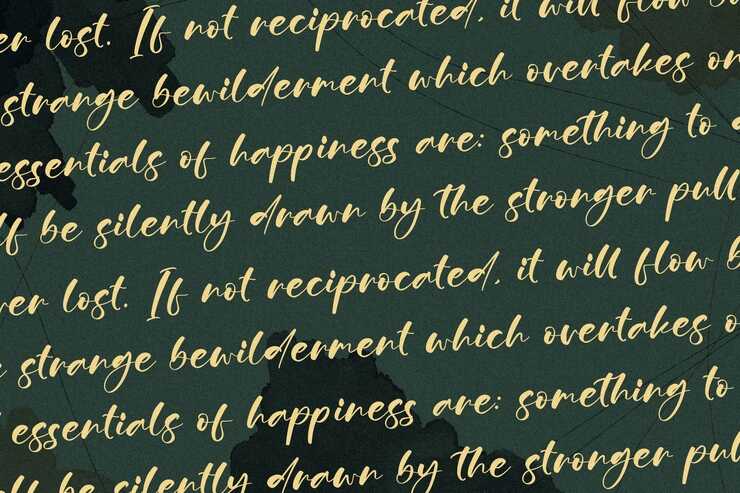 er lost. If not reciprocated, it will flow
strange bewilderment which overtakes on
essentials of happiness are: something to
lf be silently drawn by the stronger pull
ver lost. If not reciprocated, it will flow b
strange bewilderment which overtakes o
essentials of happiness are: something to
be silently drawn by the stronger pul